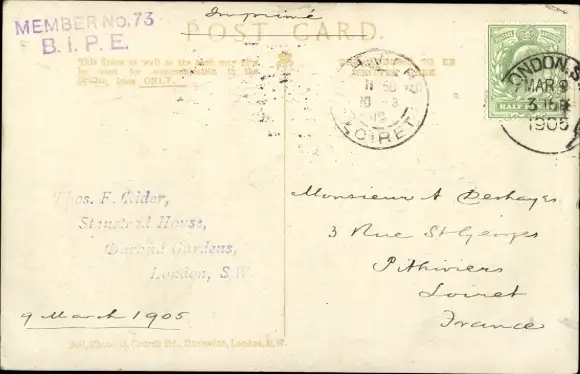 Imprimé
MEMBER No. 73
B. I. P. E.
POST CARD.
This Space as well as the back may
be used for communication in the
British Isles ONLY.
TO BE
11
10
LOIRET
HALF
LONDON. S.
MAR 9
3 15
1905
Thos. F. Rider,
House,
Gardens,
London, S.W.
9 March 1905
Monsieur A Deshayes
3 Rue St Georges
Pithiviers
Loiret
France
London, S.W.